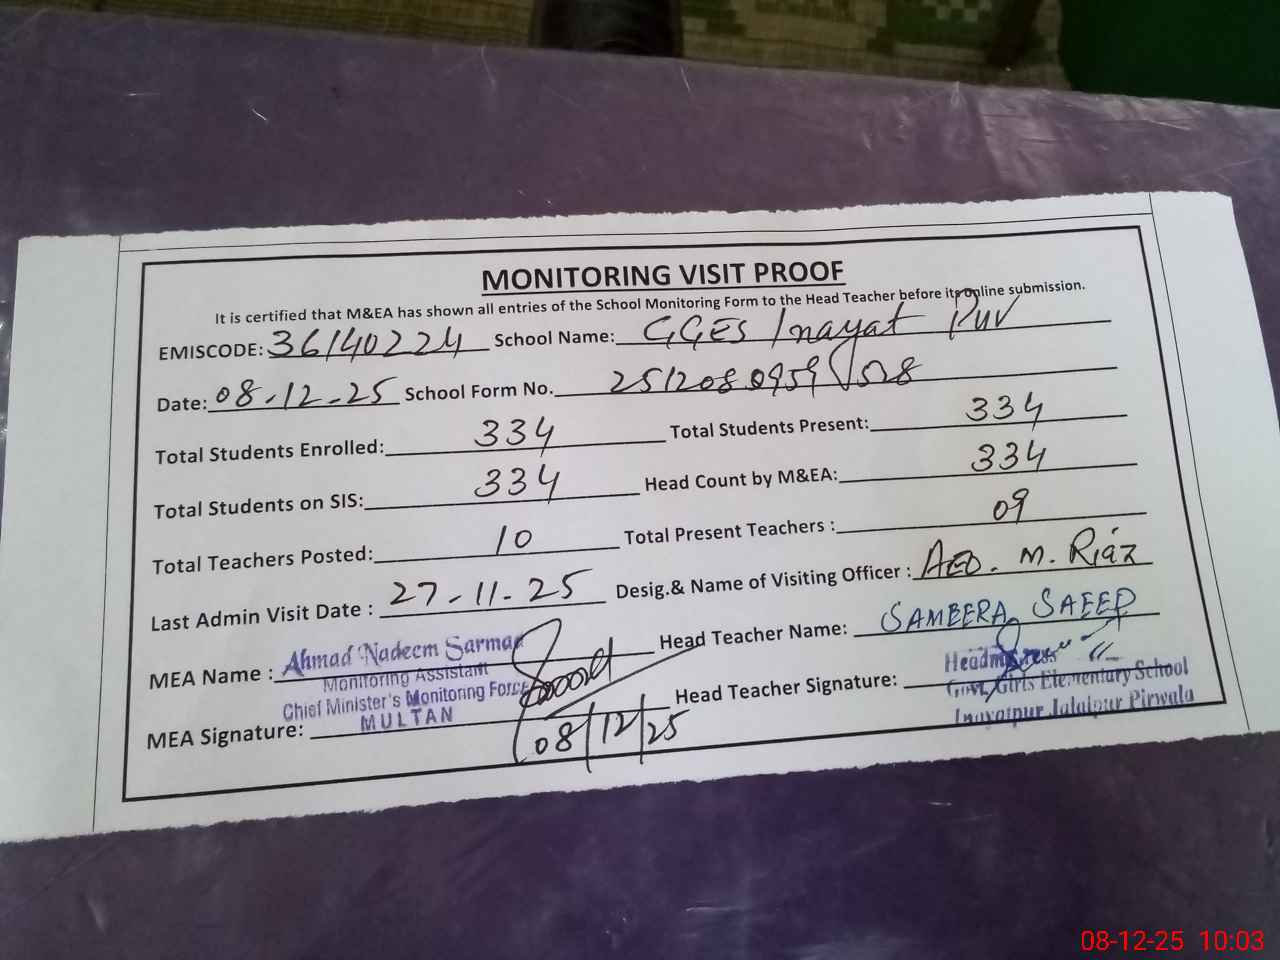 MONITORING VISIT PROOF
It is certified that M&EA has shown all entries of the School Monitoring Form to the Head Teacher before its online submission.
EMISCODE: 36140224 School Name: GGES Inayat Pur
Date: 08-12-25 School Form No. 2512080959 528
Total Students Enrolled: 334 Total Students Present: 334
Total Students on SIS: 334 Head Count by M&EA: 334
Total Teachers Posted: 10 Total Present Teachers : 09
Last Admin Visit Date : 27-11-25 Desig.& Name of Visiting Officer : AEO. M. Riaz
MEA Name : Ahmad Nadeem Sarmad Head Teacher Name: SAMEERA SAEED
Monitoring Assistant
Chief Minister's Monitoring Force
MULTAN
MEA Signature: 08/12/25 Head Teacher Signature:
Headmistress
Govt. Girls Elementary School
Inayatpur Jalalpur Pirwala
08-12-25 10:03